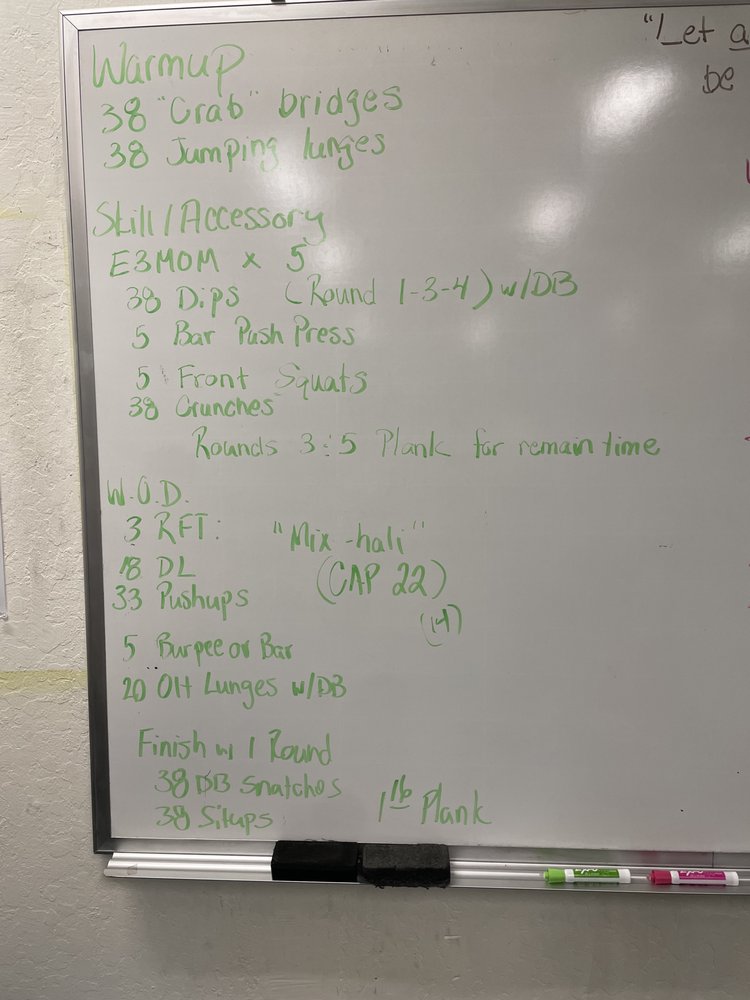 "Let a
be
Warmup
38 "Crab" bridges
38 Jumping lunges
Skill/Accessory
E3MOM x 5
38 Dips (Round 1-3-4) w/DB
5 Bar Push Press
5 Front Squats
38 Crunches
Rounds 3:5 Plank for remain time
W.O.D.
3 RFT: "Mix-hali"
18 DL (CAP 22)
33 Pushups
5 Burpee or Bar
20 OH Lunges w/DB
Finish w 1 Round
38 DB Snatches
38 Situps 1 Plank